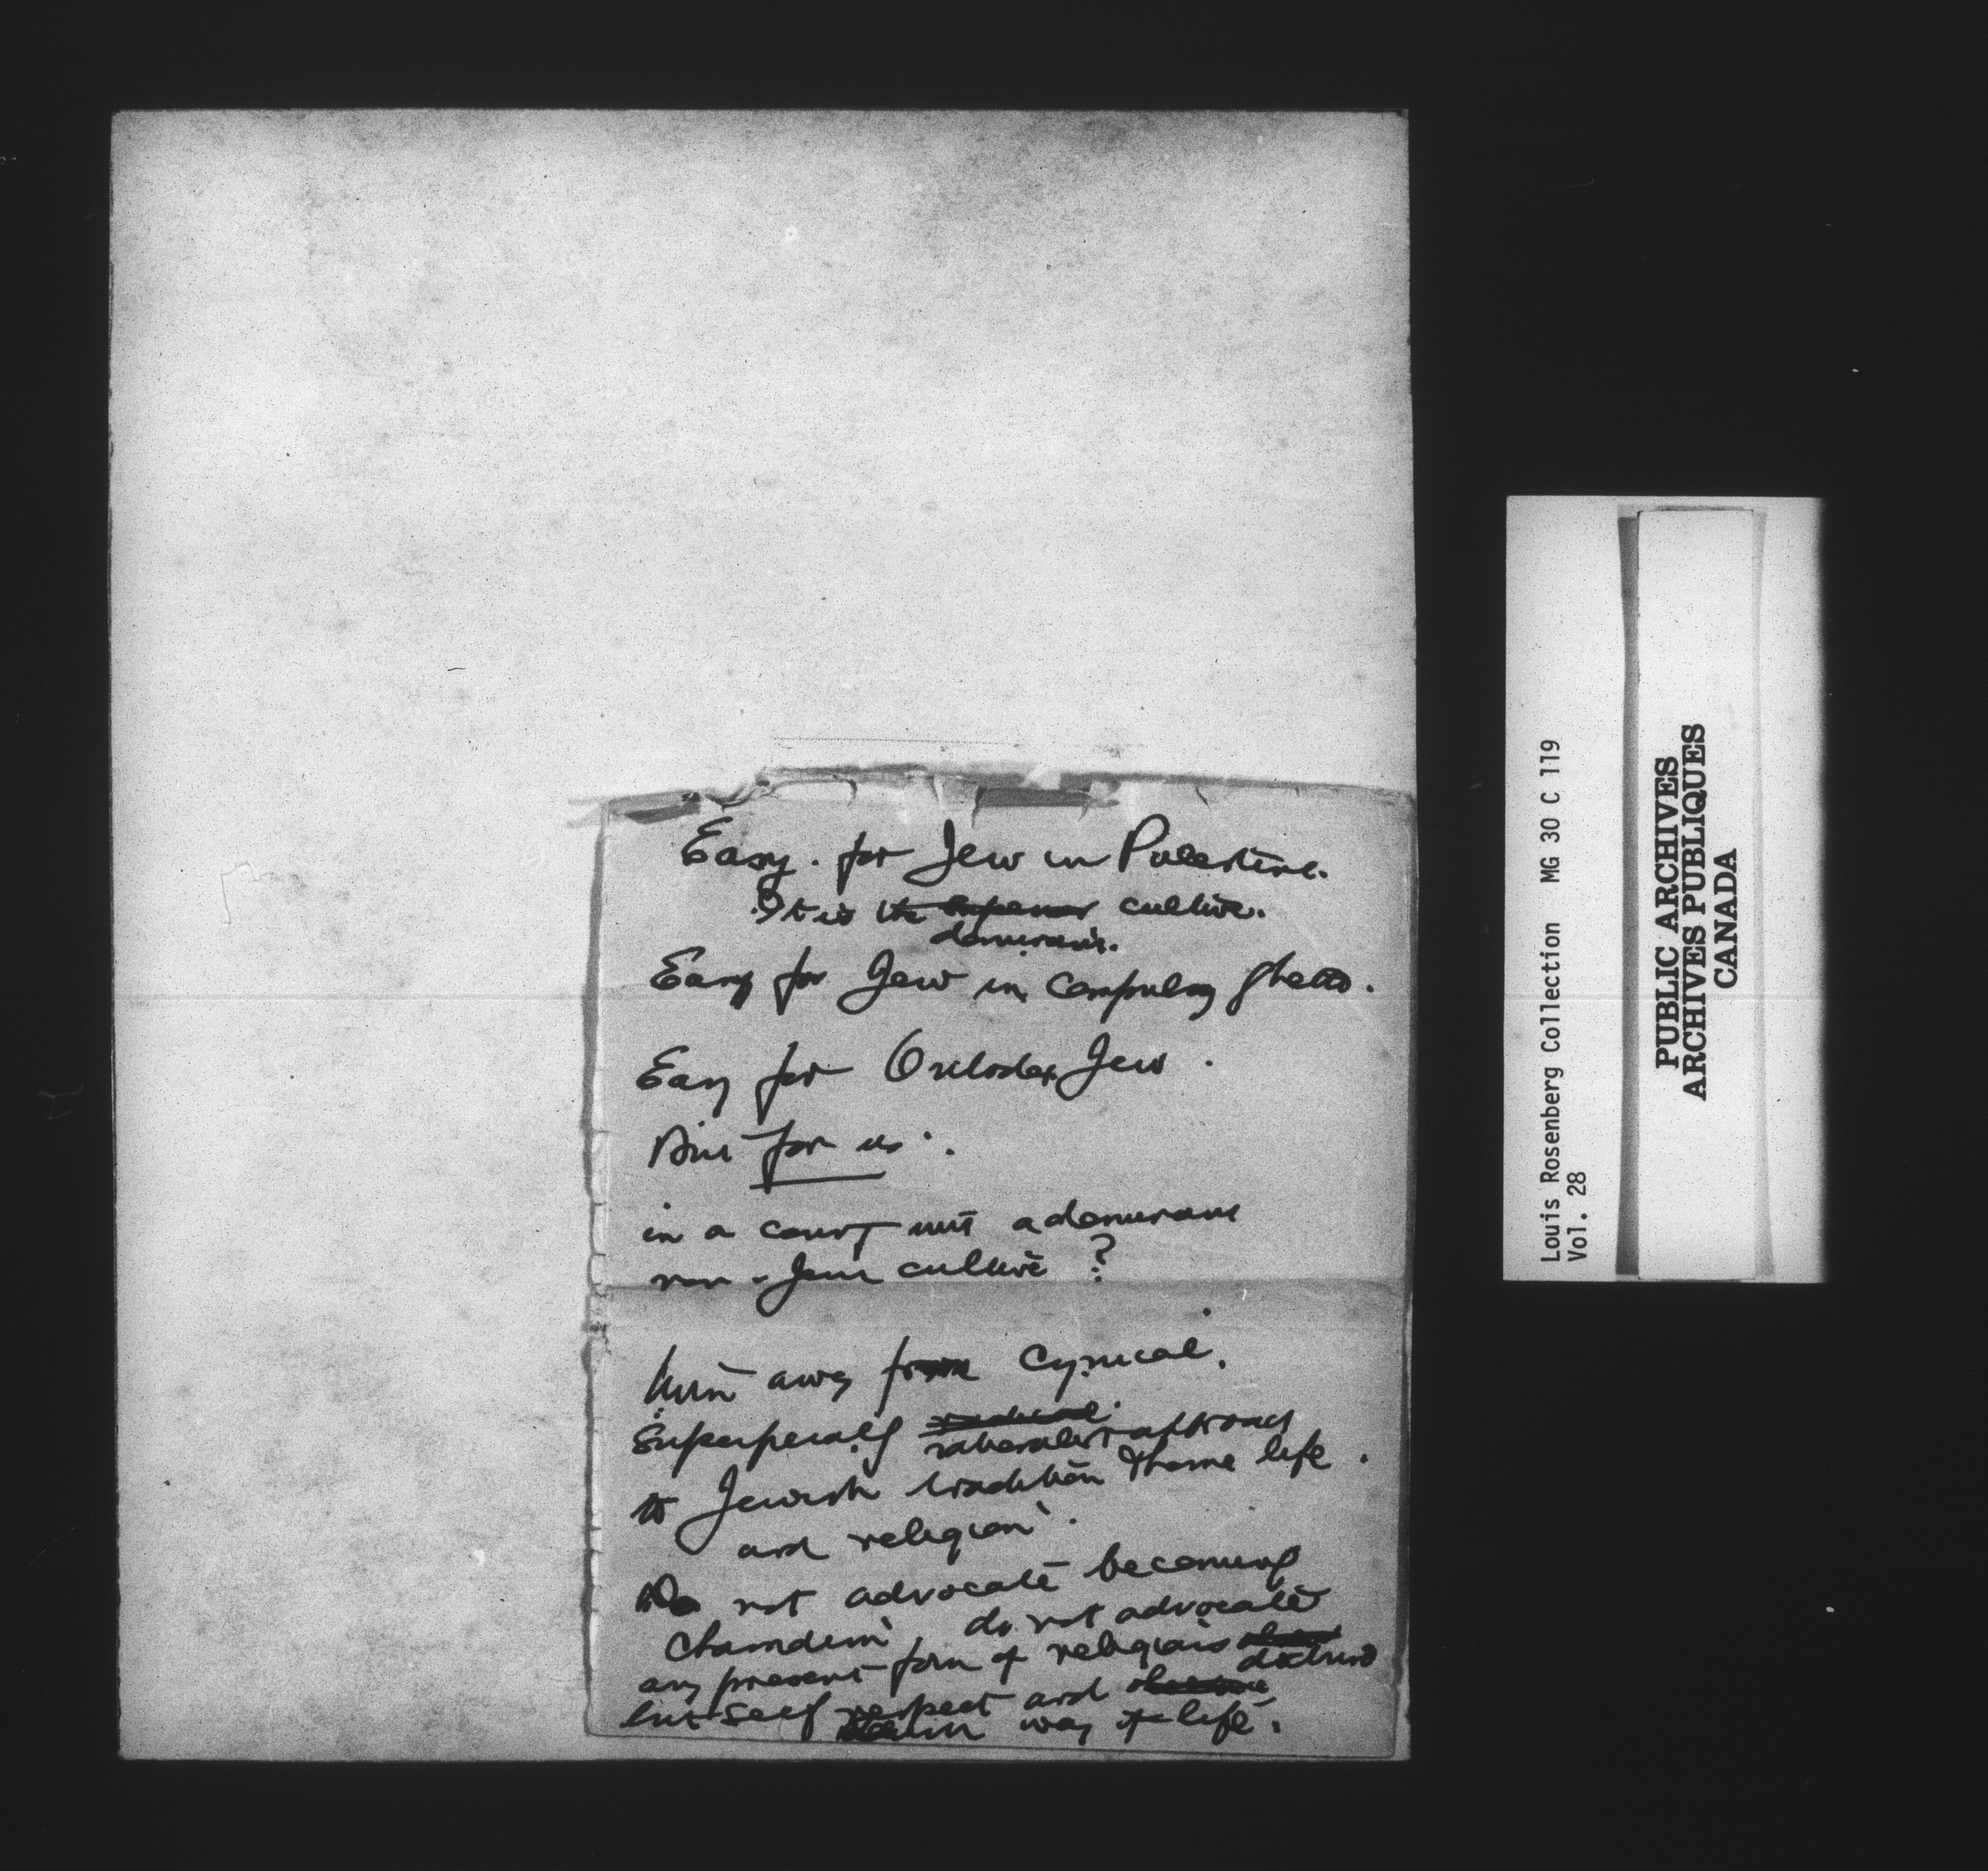 Easy. for Jew in Palestine.
It is the superior culture.
dominant.
Easy for Jew in compulsory ghetto.
Easy for Orthodox Jew.
for us.
in a country with a dominant
non-Jewish culture ?
Turn away from cynical.
superficially radical.
rationalist approach
to Jewish tradition & home life.
and religion.
Do not advocate becoming
do not advocate
any present form of religious
doctrine
but self respect and
way of life.
Louis Rosenberg Collection MG 30 C 119
Vol. 28
PUBLIC ARCHIVES
ARCHIVES PUBLIQUES
CANADA